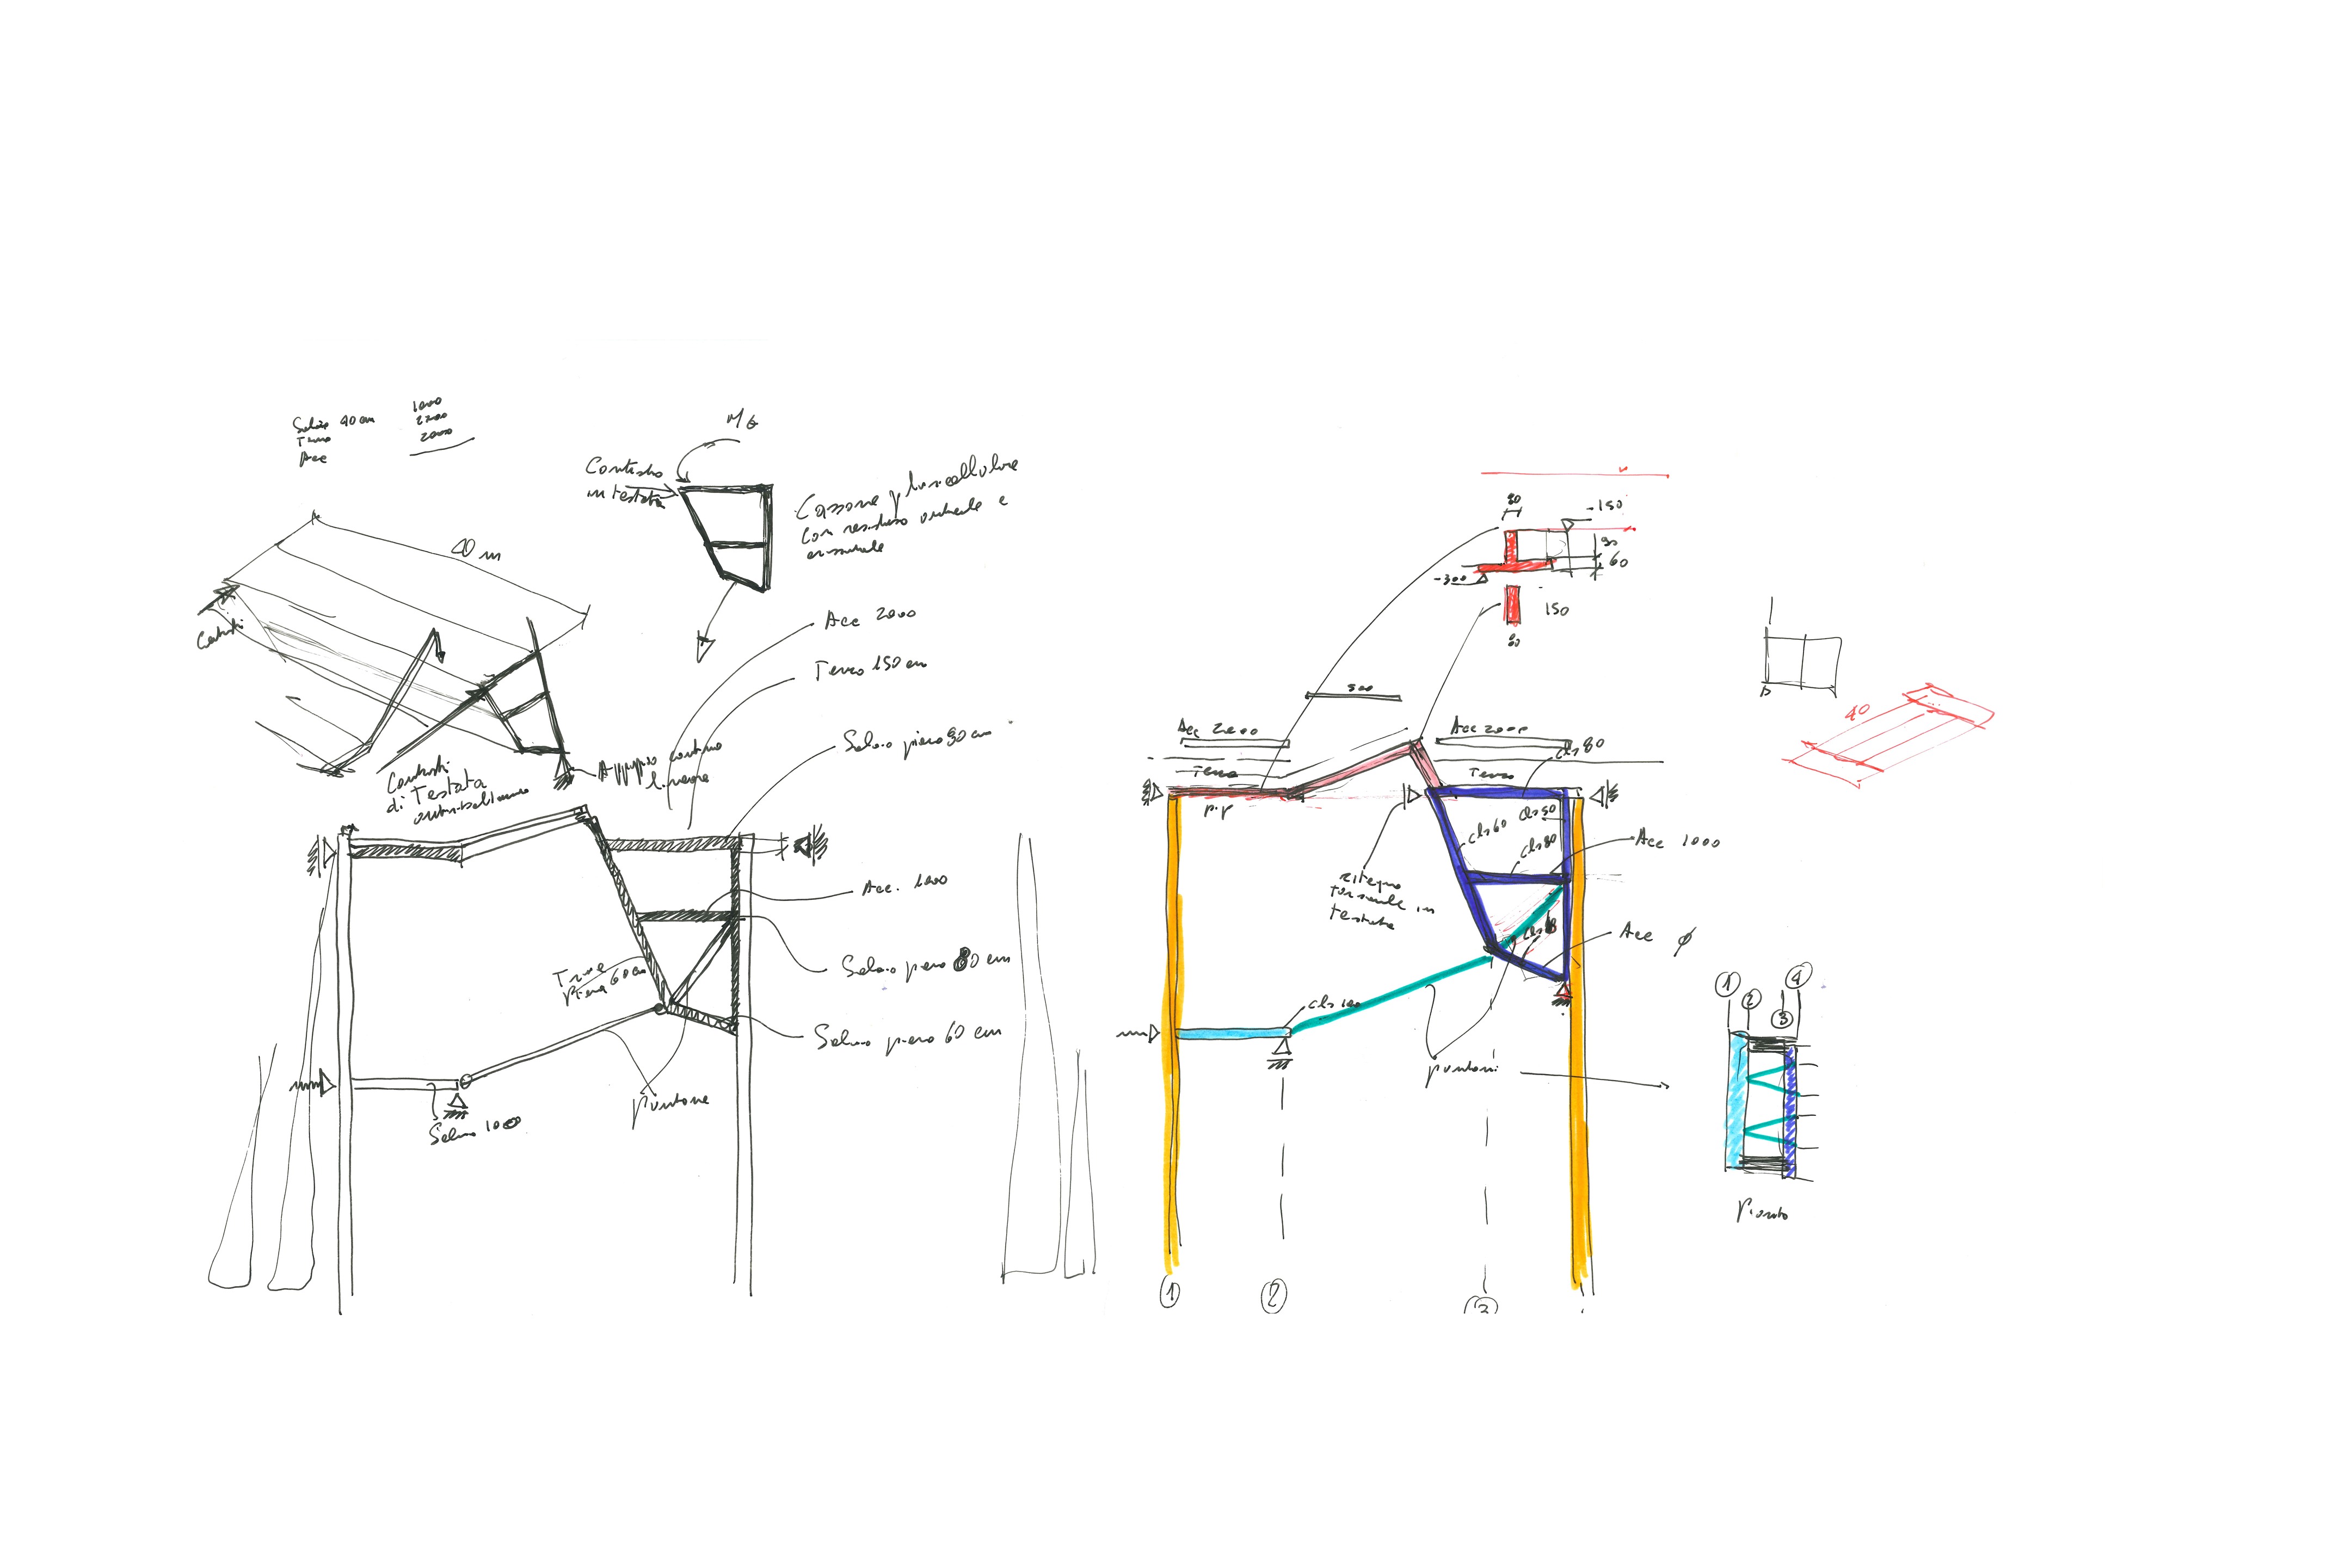 Solaio 40 cm 1000
Terreno 2700
Acc 2000
Mt
Contrasto
in testata
Cassone pluricellulare
con resistenza verticale e
orizzontale
40 m
Contrasti
Contrasti
di Testata
Appoggio continuo
lineare
Acc 2000
Terreno 150 cm
Solaio pieno 80 cm
Acc. 1000
Trave
piena 60 cm
Solaio pieno 80 cm
Solaio pieno 60 cm
puntone
Solaio 1000
80
-150
90
60
-300
150
80
500
Acc 2000
Acc 2000
cls 80
Terra
Terra
p.p
cls 60
cls 50
cls 80
Acc 1000
ritegno
torsionale in
testata
Acc ϕ
cls 100
puntoni
1
2
3
1
2
3
4
Pianta
40